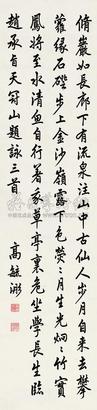 脩巖如長廊下有流泉注山中古仙人步月自來去攀
蘿緣石磴步上金沙嶺露下色熒〻月生光炯〻竹實
鳳將至水清魚自行著我草亭裏危坐學長生臨
趙承旨天冠山題詠三首
高毓浵